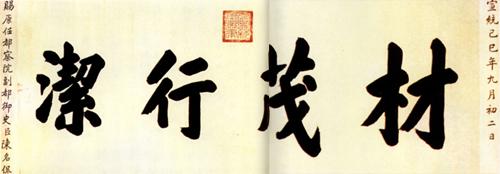 宣統己巳年九月初二日
材茂行潔
賜原任都察院副都御史臣陳名侃